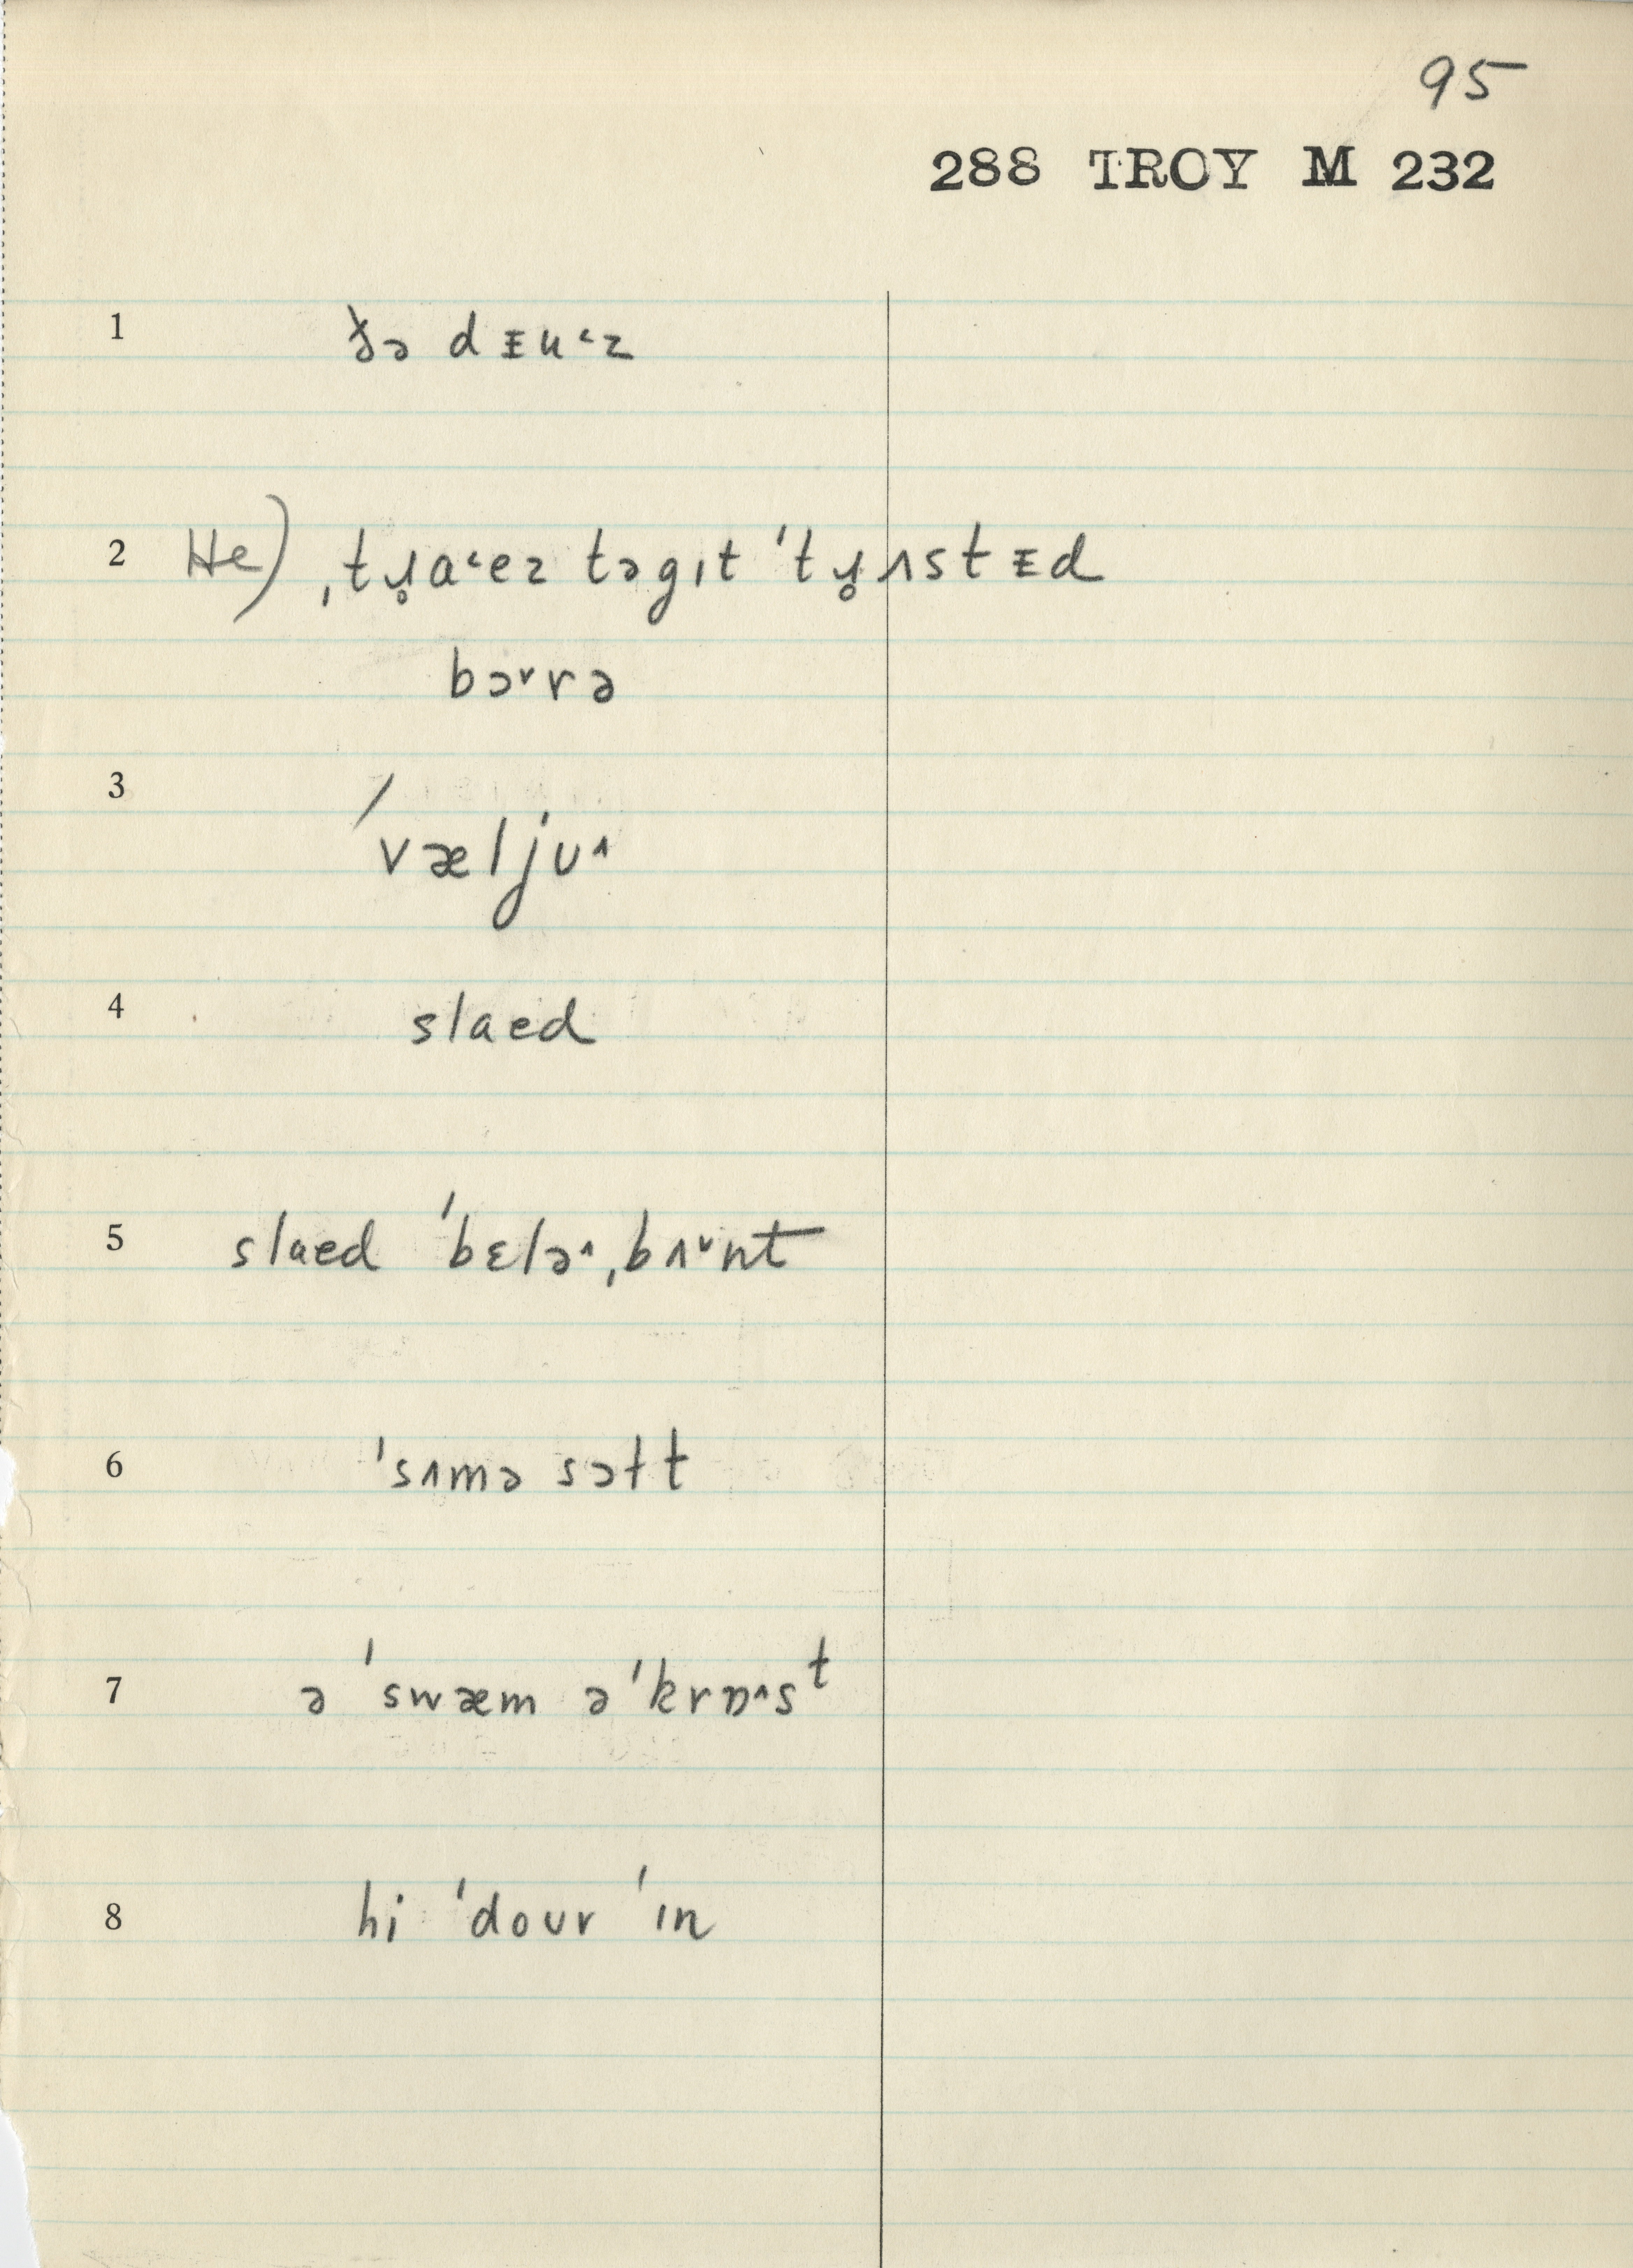 95
288 TROY M 232
1 ðə dᵻu˂z
2 He) ˌtɹ̥a˂ez təgɪt ˈtɹ̥ʌstᵻd
bɔ˅rə
3 ˈvæljʊ˄
4 slaed
5 slaed ˈbɛlə˄ˌbʌ˅nt
6 ˈsʌmə sɔɫt
7 ə ˈswæm əˈkrɒ˄sᵗ
8 hi ˈdoʊr ˈɪn